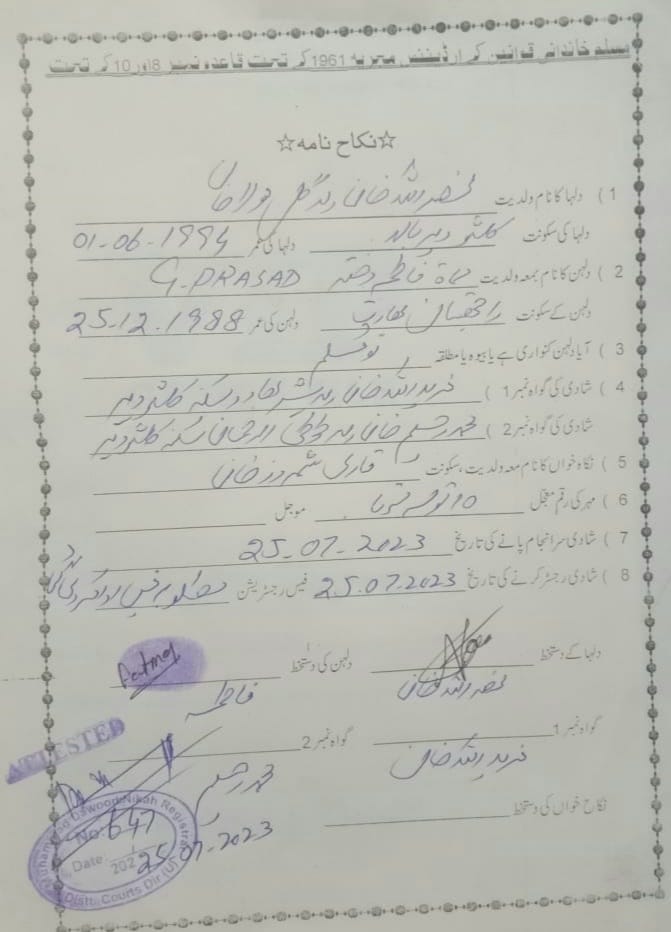 مسلم خاندانی قوانین کے آرڈیننس مجریہ 1961 کے تحت قاعدہ نمبر 8 اور 10 کے تحت
☆نکاح نامہ☆
1 ) دلہا کا نام ولدیت نصر اللہ خان ولد گل مولا خان
دلہا کی سکونت کلشو دیر بالا دلہا کی عمر 01-06-1994
2 ) دلہن کا نام بمعہ ولدیت مسماۃ فاطمہ دختر G.PRASAD
دلہن کے سکونت راجھستان بھارت دلہن کی عمر 25.12.1988
3 ) آیا دلہن کنواری ہے یا بیوہ یا مطلقہ نو مسلم
4 ) شادی کی گواہ نمبر 1 ) فرید اللہ خان ولد سکنہ کلشو دیر
شادی کی گواہ نمبر 2 ) محمد رحیم خان ولد سکنہ کلشو دیر
5 ) نکاہ خواں کا نام معہ ولدیت، سکونت قاری شمروز خان
6 ) مہر کی رقم معجل 10 تولہ موجل
7 ) شادی سرانجام پانے کی تاریخ 25-07-2023
8 ) شادی رجسٹر کرنے کی تاریخ 25.07.2023 فیس رجسٹریشن
دلہا کے دستخط دلہن کی دستخط Fatima
نصر اللہ خان فاطمہ
گواہ نمبر 1 گواہ نمبر 2
فرید اللہ خان محمد رحیم
ATTESTED
نکاح خواں کی دستخط
Muhammad Dawood Nikah Registrar
No: 647
Date: 202
25.07.2023
Distt: Courts Dir (U)